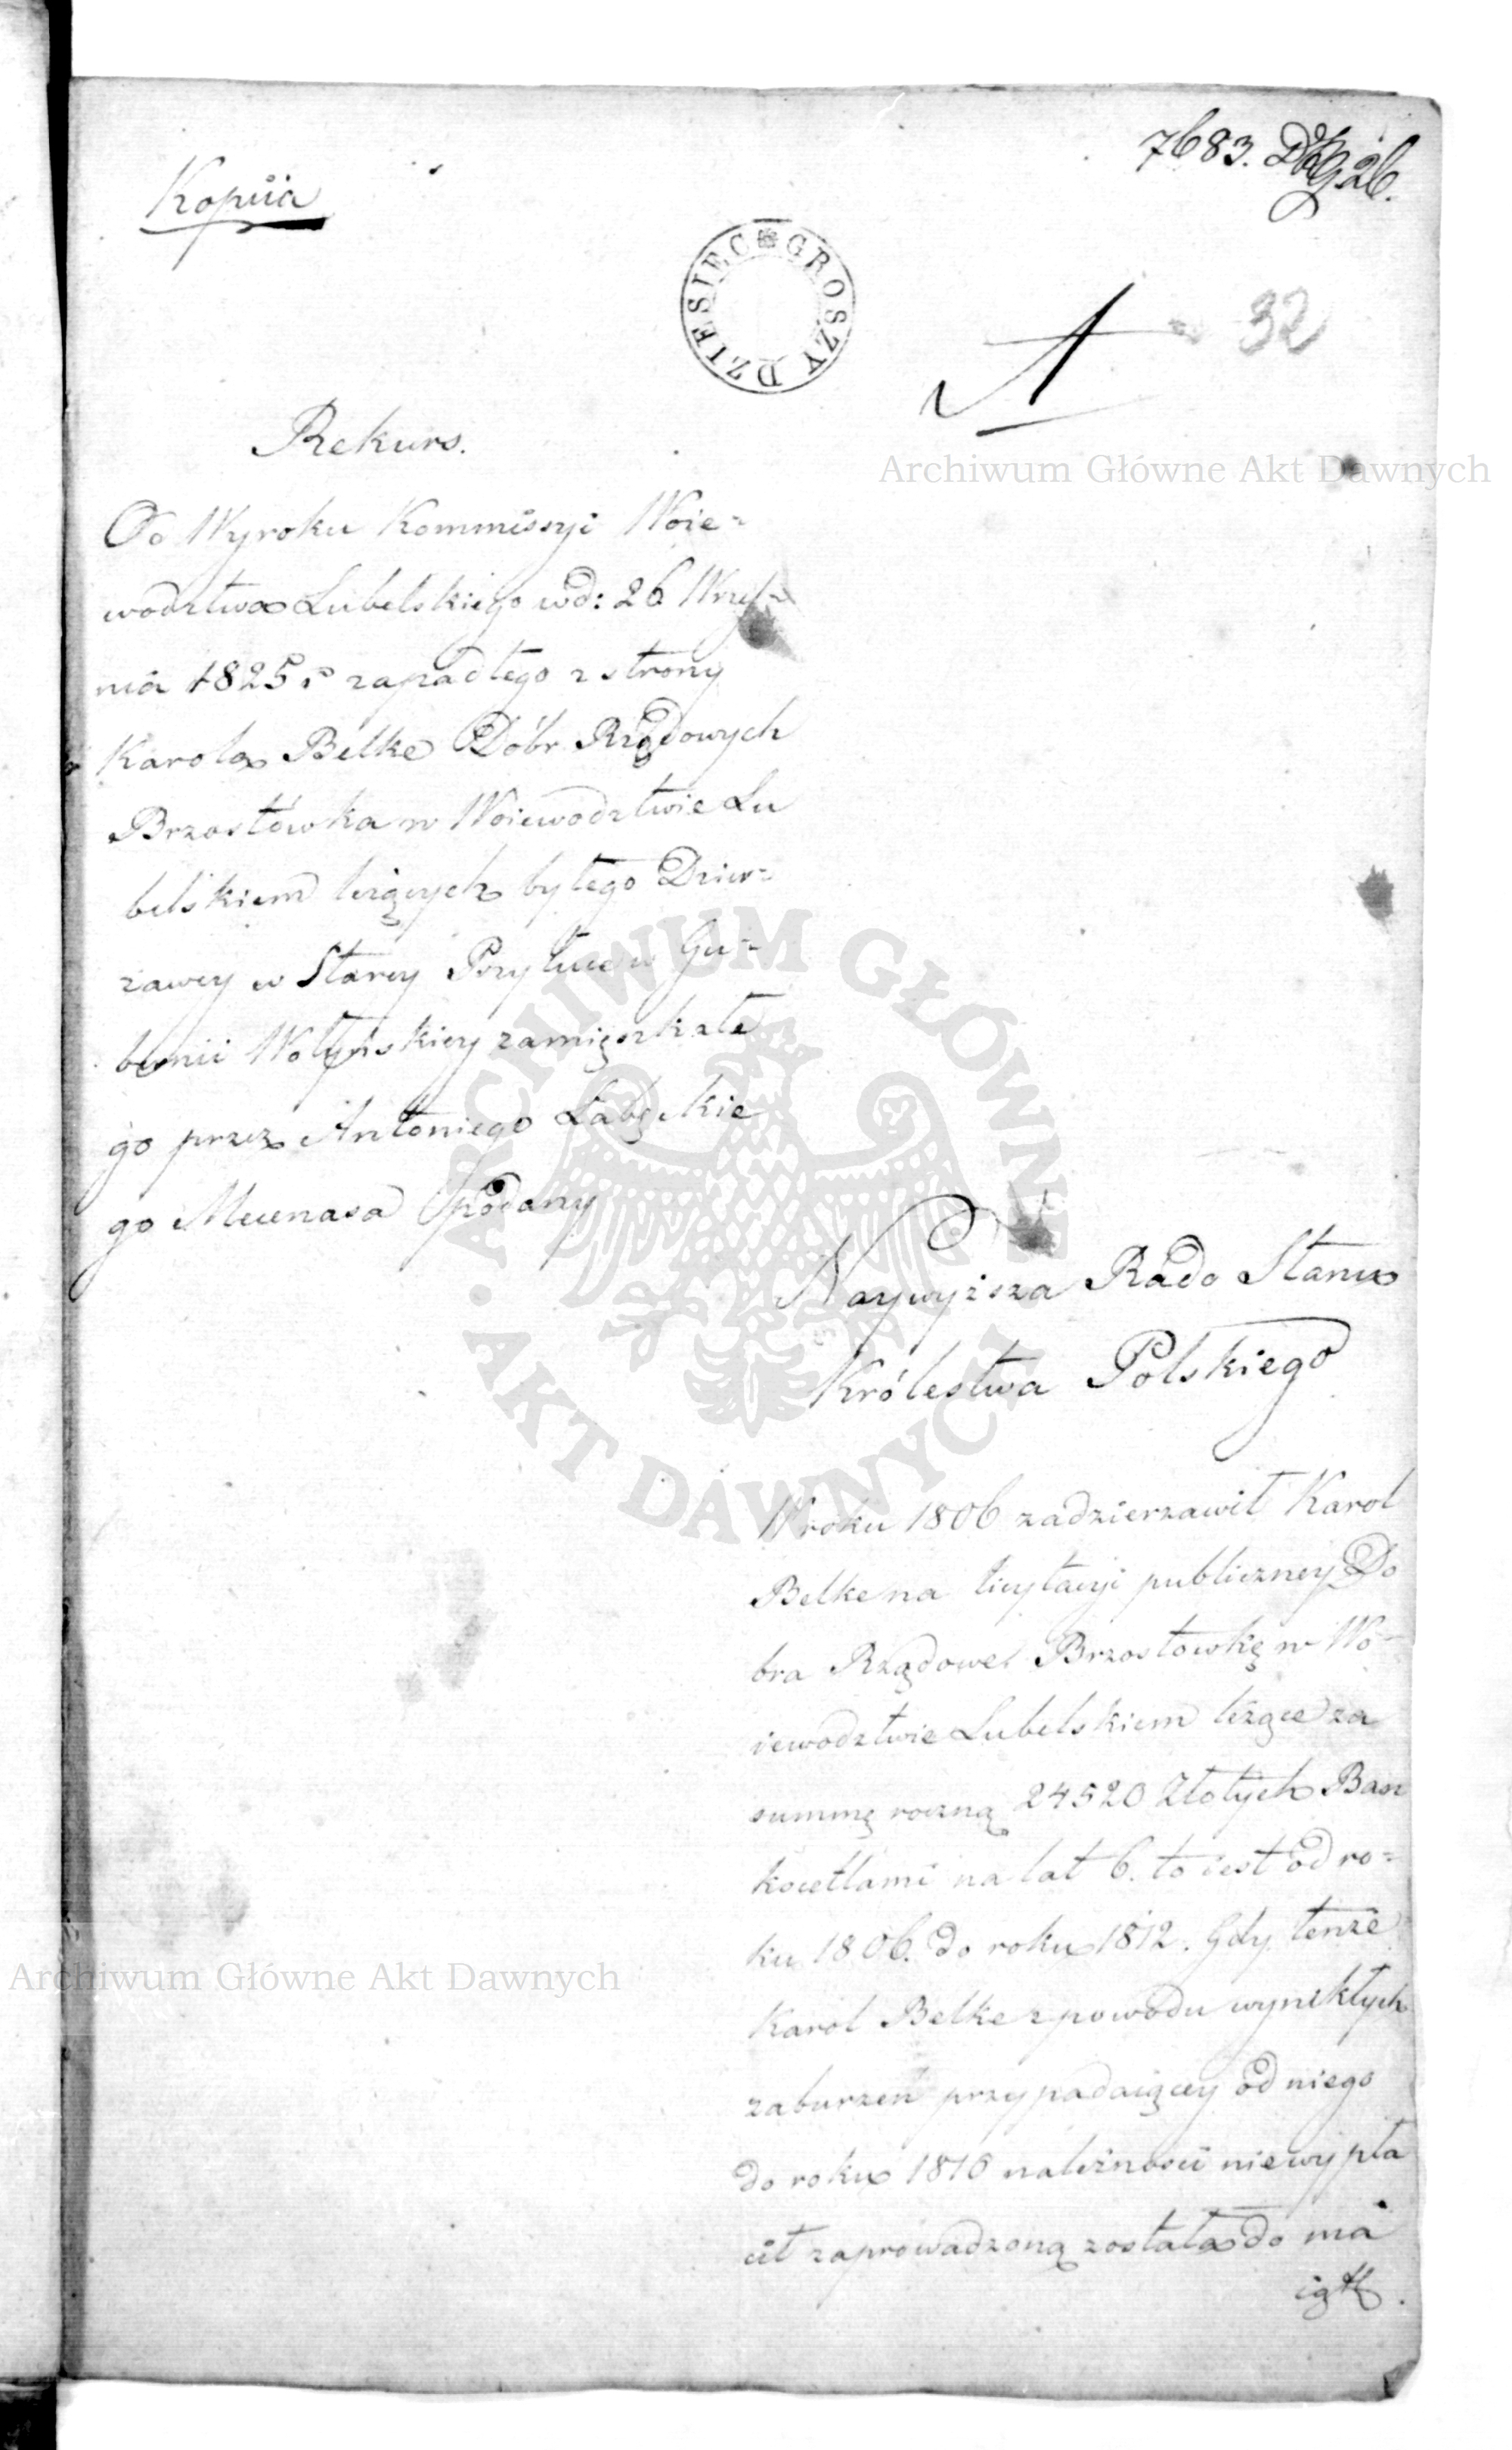 Kopiia
7683.
DZIESIEC GROSZY
A
32
Rekurs.
Od Wyroku Kommissyi Woie=
wodztwa Lubelskiego w d: 26 Wrześ=
nia 1825 r zapadłego z strony
Karola Belke Dóbr Rządowych
Brzostówka w Woiewodztwie Lu
belskiem leżących byłego Dzier=
zawcy w Starey Porytwe w Gu=
bernii Wołyńskiey zamięszkałe
go przez Antoniego Łabęckie
go Mecenasa podany
Naywyższa Rado Stanu
Królestwa Polskiego
W roku 1806 zadzierzawił Karol
Belke na licytacyi publiczney Do
bra Rządowe Brzostowkę w Wo=
iewodztwie Lubelskiem leżące za
summę roczną 24520 Złotych Ban
kocetlami na lat 6. to iest od ro=
ku 1806. do roku 1812. Gdy tenże
Karol Belke z powodu wynikłych
zaburzeń przypadaiącey od niego
do roku 1810 należności niewypła
cił zaprowadzoną została do ma
iątk.
Archiwum Główne Akt Dawnych
Archiwum Główne Akt Dawnych
ARCHIWUM GŁÓWNE AKT DAWNYCH